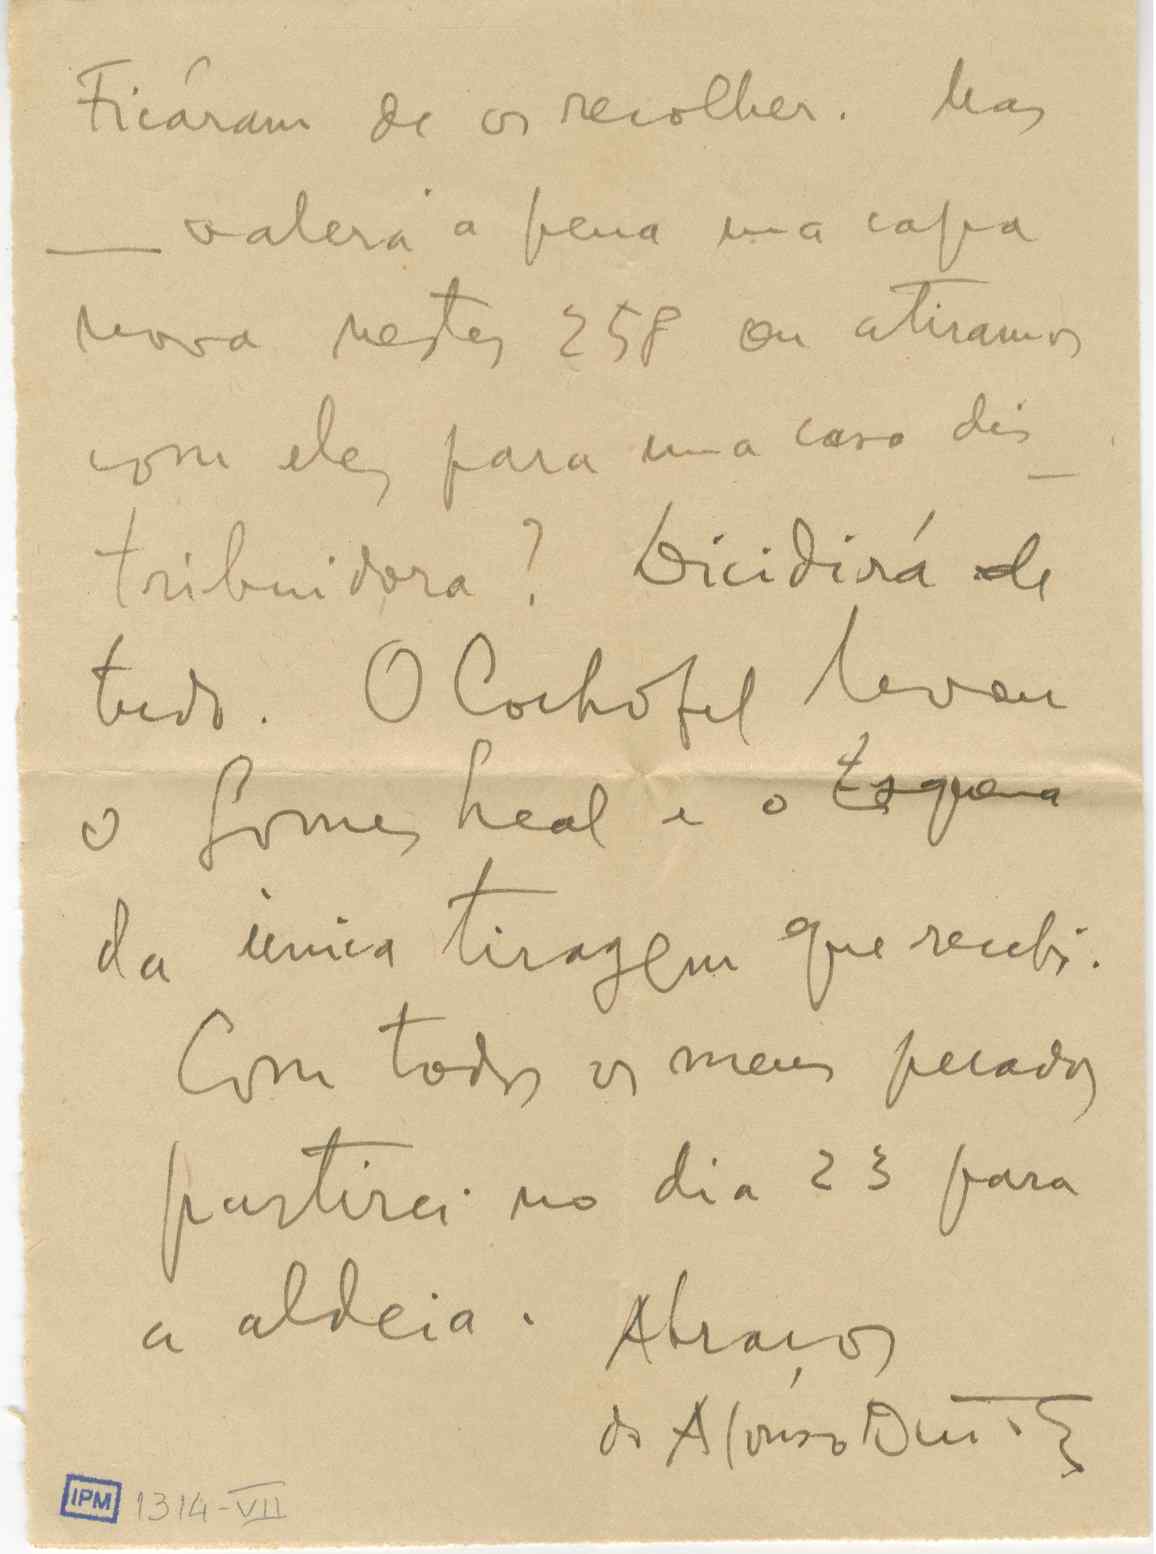 Ficáram de os recolher. Mas
— valerá a pena uma capa
nova nestes 258 ou atiramos
com eles para uma casa dis-
tribuidora? Dicidirá de
tudo. O Cochofel levou
o Gomes Leal e o
da única tiragem que recebi.
Com todos os meus pecados
partirei no dia 23 para
a aldeia. Abraços
do Afonso Duarte
IPM 1314-VII